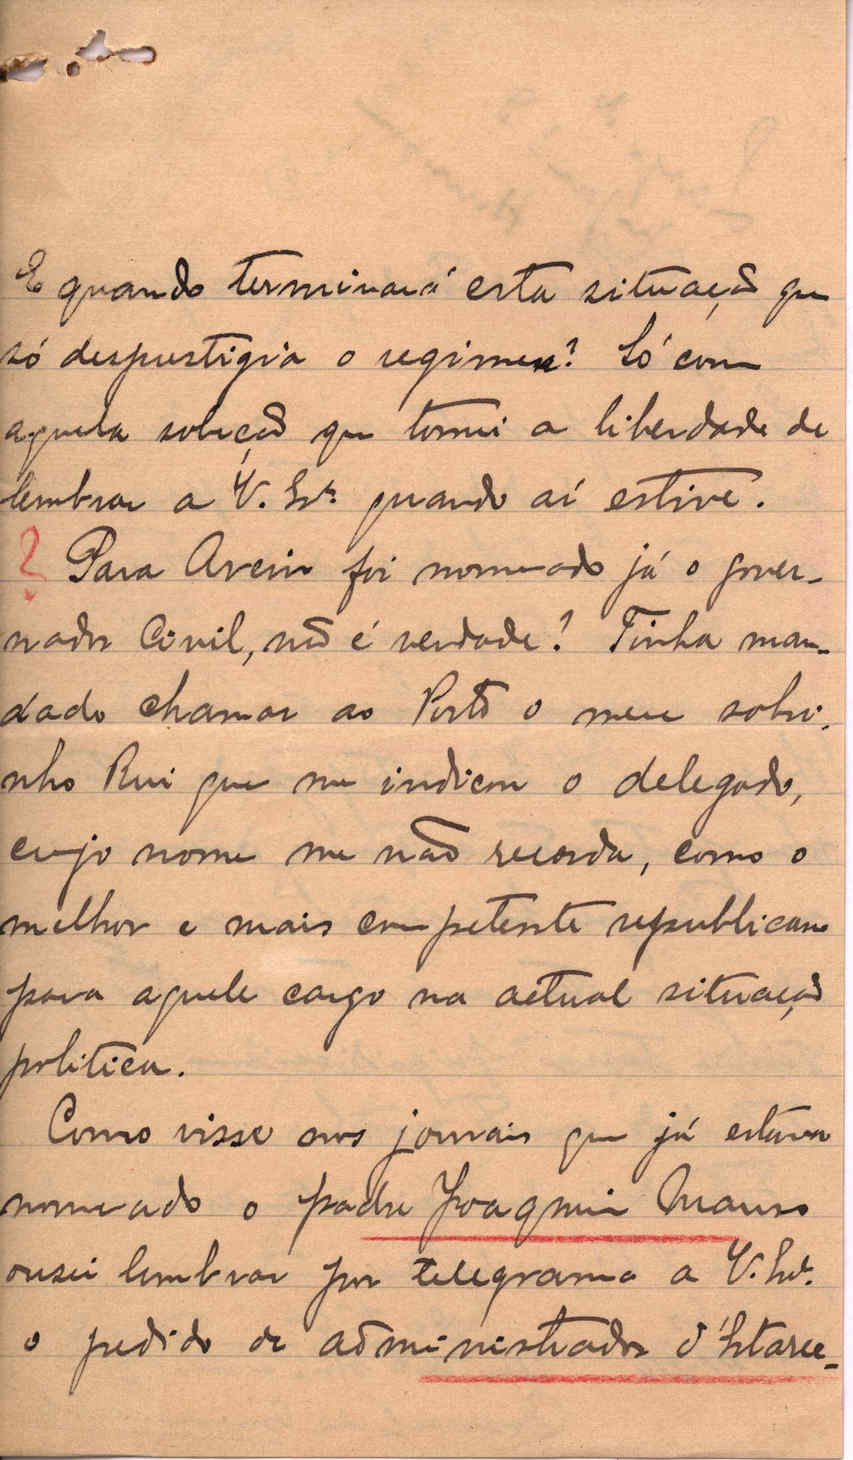 E quando terminará esta situação que
só desprestigia o regimen? Só com
aquela solução que tomei a liberdade de
lembrar a V. Exª. quando aí estive.
? Para Aveiro foi nomeado já o gover-
nador Civil, não é verdade? Tinha man-
dado chamar ao Porto o meu sobri-
nho Rui que me indicou o delegado,
cujo nome me não recorda, como o
melhor e mais competente republicano
para aquele cargo na actual situação
politica.
Como visse nos jornais que já estava
nomeado o padre Joaquim
ousei lembrar por telegrama a V. Exª.
o pedido de administrador d'Estarre-